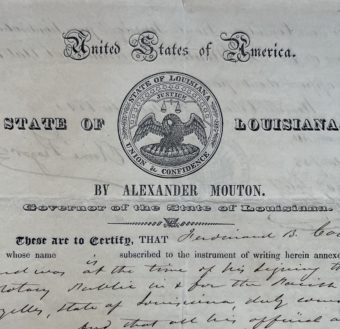 United States of America.
STATE OF LOUISIANA
JUSTICE
UNION & CONFIDENCE
STATE OF LOUISIANA
BY ALEXANDER MOUTON.
Governor of the State of Louisiana.
These are to Certify, THAT Ferdinand B. Co
whose name is subscribed to the instrument of writing herein annex
was at the time of his signing
otary Public in & for the Parish
elles, State of Louisiana, duly
that all his official a